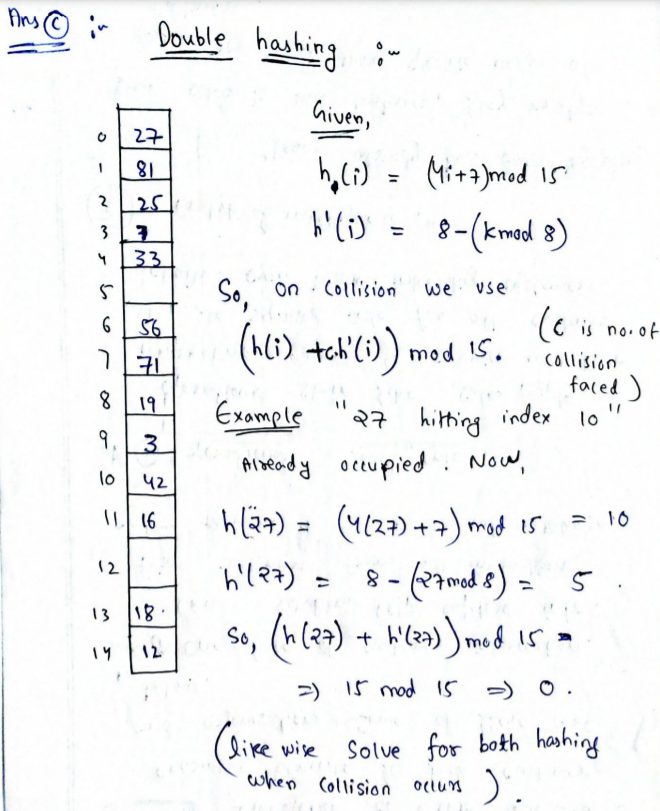 Ans (C) :-
Double hashing :-
0 27
1 81
2 25
3 7
4 33
5
6 56
7 71
8 19
9 3
10 42
11 16
12
13 18
14 12
Given,
h(i) = (4i+7)mod 15
h'(i) = 8-(kmod 8)
So, on collision we use
(h(i) +c.h'(i)) mod 15. (C is no. of
collision
faced)
Example "27 hitting index 10"
Already occupied. Now,
h(27) = (4(27)+7) mod 15 = 10
h'(27) = 8-(27mod 8) = 5.
So, (h(27) + h'(27)) mod 15 =
=) 15 mod 15 =) 0.
(like wise solve for both hashing
when collision occurs).